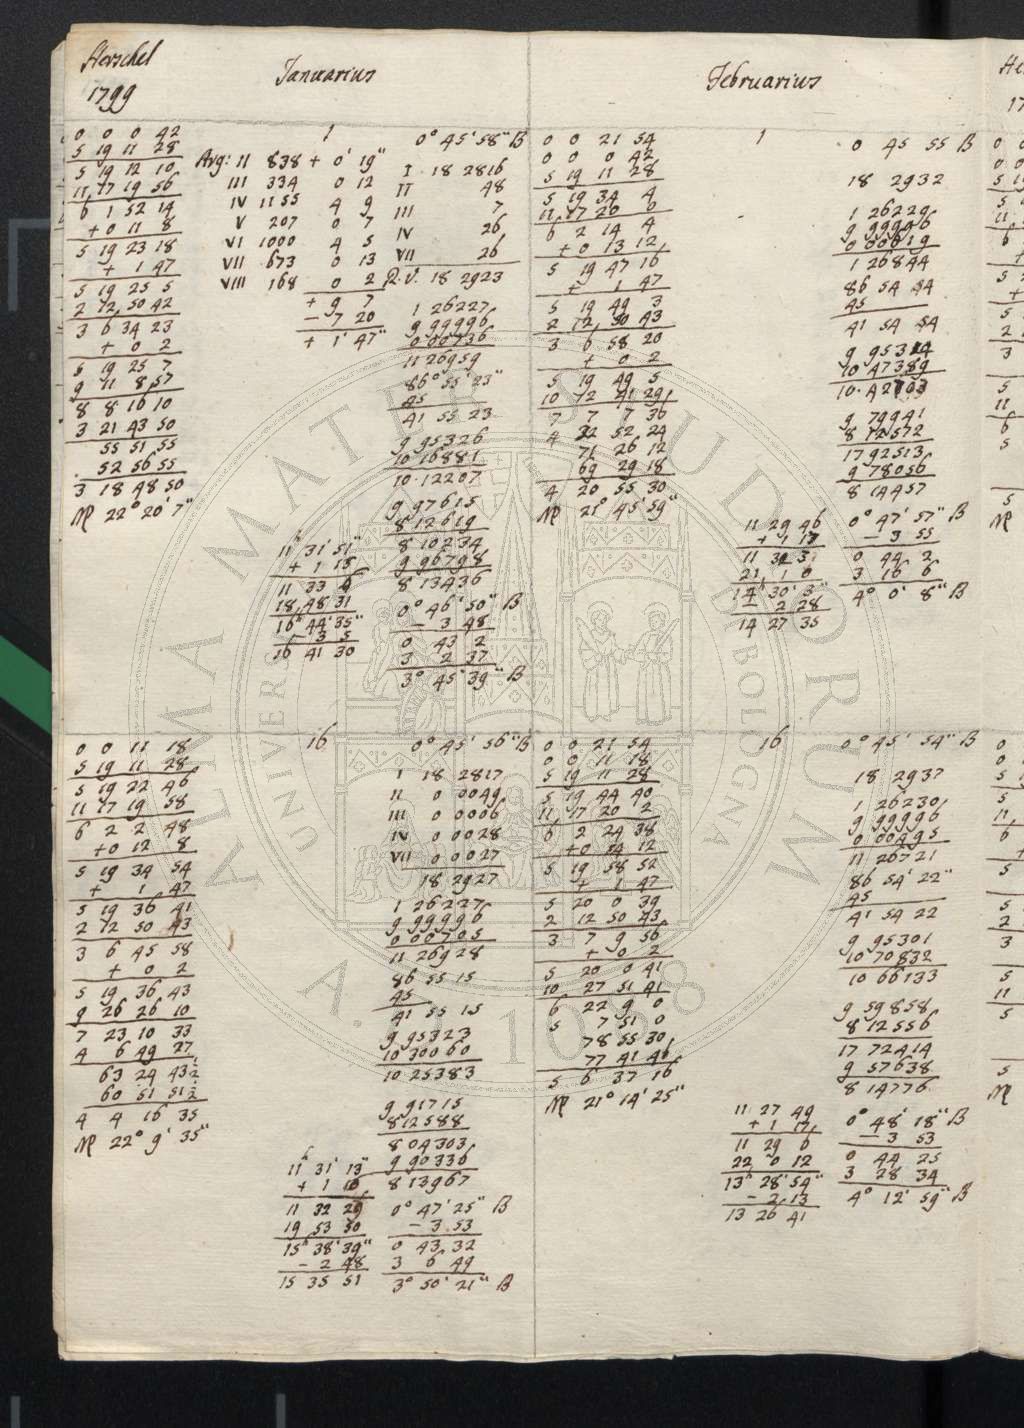 Herschel
1799
Januarius
1
0 0 0 42
5 19 11 28
5 19 12 10
11 17 19 56
6 1 52 14
+ 0 11 8
5 19 23 18
+ 1 47
5 19 25 5
2 12 50 42
3 6 34 23
+ 0 2
5 19 25 7
9 11 8 57
8 8 16 10
3 21 43 50
55 51 55
52 56 55
3 18 48 50
♍ 22° 20' 7"
Arg: II 838 + 0' 19"
III 334 0 12
IV 1155 4 9
V 207 0 7
VI 1000 4 5
VII 673 0 13
VIII 168 0 2
+ 9 7
− 7 20
+ 1' 47"
11h 31' 51"
+ 1 15
11 33 6
18 48 31
16h 44' 35"
− 3 5
16 41 30
0° 45' 58" B
I 18 2816
II 48
III 7
IV 26
VII 26
R.V. 18 2923
1 26227
9 99996
0 00736
11 26959
86° 55' 23"
45
41 55 23
9 95326
10 16881
10.12207
9 97615
8 12619
8 10234
9 96798
8 13436
0° 46' 50" B
− 3 48
0 43 2
3 2 37
3° 45' 39" B
Februarius
1
0 0 21 54
0 0 0 42
5 19 11 28
5 19 34 4
11 17 20 0
6 2 14 4
+ 0 13 12
5 19 47 16
+ 1 47
5 19 49 3
2 12 50 43
3 6 58 20
+ 0 2
5 19 49 5
10 12 41 29
7 7 7 36
4 22 52 24
71 26 12
69 29 18
4 20 55 30
♍ 21° 45' 59"
11 29 46
+ 1 17
11 31 3
21 1 0
14h 30' 3"
− 2 28
14 27 35
0 45 55 B
18 2932
1 26229
9 99996
0 00619
1 26844
86 54 54
45
41 54 54
9 95314
10 47389
10.42703
9 79941
8 12572
17 92513
9 78056
8 14457
0° 47' 57" B
− 3 55
0 44 2
3 16 6
4° 0' 8" B
16
0 0 11 18
5 19 11 28
5 19 22 46
11 17 19 58
6 2 2 48
+ 0 12 8
5 19 34 54
+ 1 47
5 19 36 41
2 12 50 43
3 6 45 58
+ 0 2
5 19 36 43
9 26 26 10
7 23 10 33
4 6 49 27
63 24 43½
60 51 51½
4 4 16 35
♍ 22° 9' 35"
11h 31' 13"
+ 1 16
11 32 29
19 53 50
15h 38' 39"
− 2 48
15 35 51
0° 45' 56" B
I 18 2817
II 0 0049
III 0 0006
IV 0 0028
VII 0 0027
18 2927
1 26227
9 99996
0 00705
11 26928
86 55 15
45
41 55 15
9 95323
10 30060
10 25383
9 91715
8 12588
8 04303
9 90336
8 13967
0° 47' 25" B
− 3 53
0 43 32
3 6 49
3° 50' 21" B
16
0 0 21 54
0 0 11 18
5 19 11 28
5 19 44 40
11 17 20 2
6 2 24 38
+ 0 14 12
5 19 58 52
+ 1 47
5 20 0 39
2 12 50 43
3 7 9 56
+ 0 2
5 20 0 41
10 27 51 41
6 22 9 0
5 7 51 0
78 55 30
77 41 46
5 6 37 16
♍ 21° 14' 25"
11 27 49
+ 1 17
11 29 6
22 0 12
13h 28' 54"
− 2 13
13 26 41
0° 45' 54" B
18 2937
1 26230
9 99996
0 00495
11 26721
86 54' 22"
45
41 54 22
9 95301
10 70832
10 66133
9 59858
8 12556
17 72414
9 57638
8 14776
0° 48' 18" B
− 3 53
0 44 25
3 28 34
4° 12' 59" B
ALMA MATER STUDIORUM
UNIVERSITÀ DI BOLOGNA
A.D. 1088